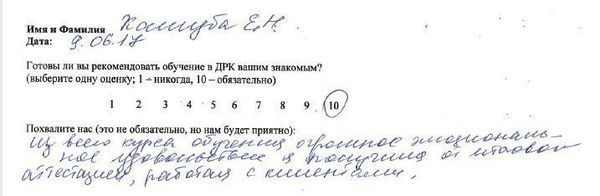 Имя и Фамилия Кашуба Е.Н.
Дата: 9.06.17
Готовы ли вы рекомендовать обучение в ДРК вашим знакомым?
(выберите одну оценку; 1 – никогда, 10 – обязательно)
1 2 3 4 5 6 7 8 9 10
Похвалите нас (это не обязательно, но нам будет приятно):
Из всего курса обучения огромное эмоциональ-
ное удовольствие я получила от итоговой
аттестации, работая с клиентами.